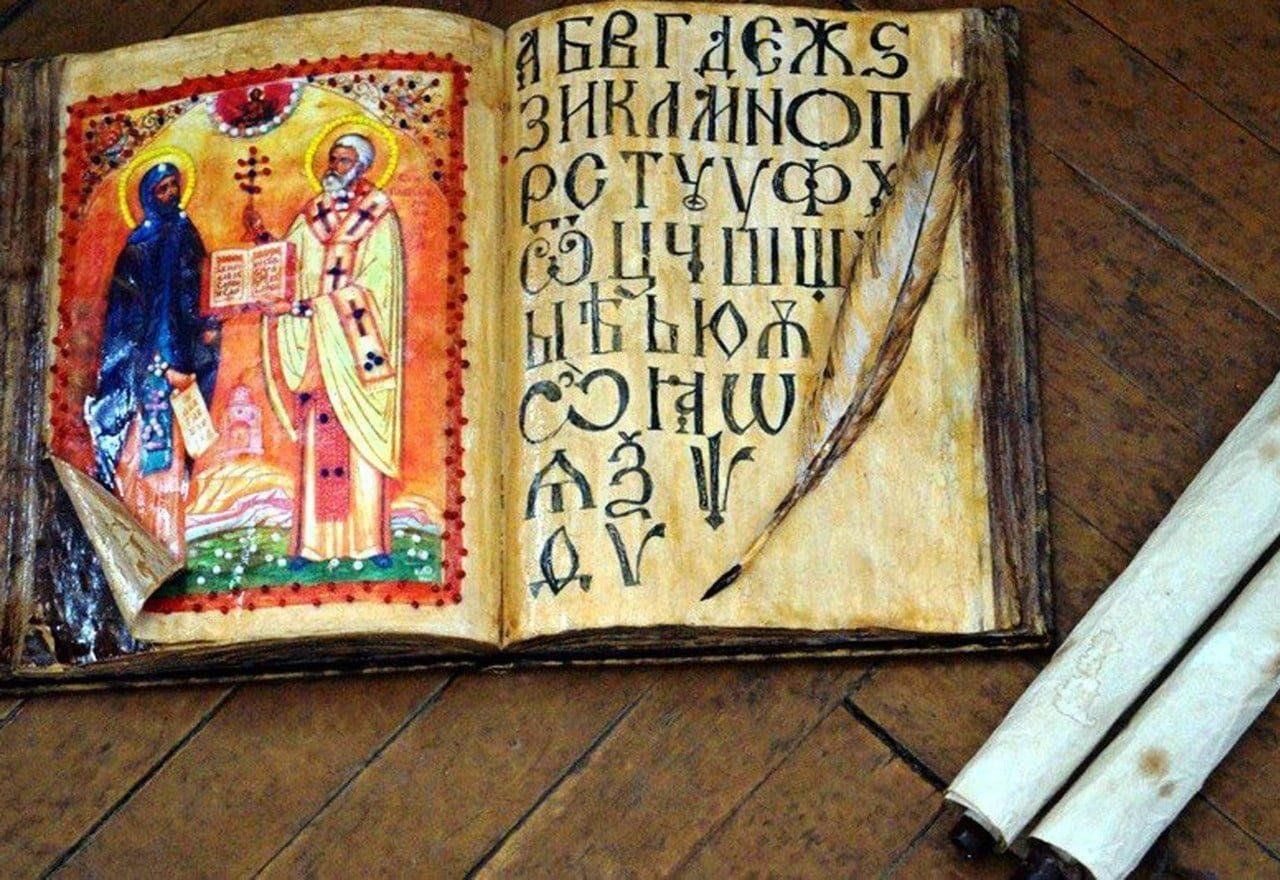 А Б В Г Д Є Ж Ѕ
З И К Л М Н О П
Р С Т Ѹ У Ф Х
Ѿ Ц Ч Ш Щ
Ы Ѣ Ь Ю Ѫ
Ѽ Ꙗ Ѡ
Ѧ Ѯ Ѱ
Ѳ Ѵ